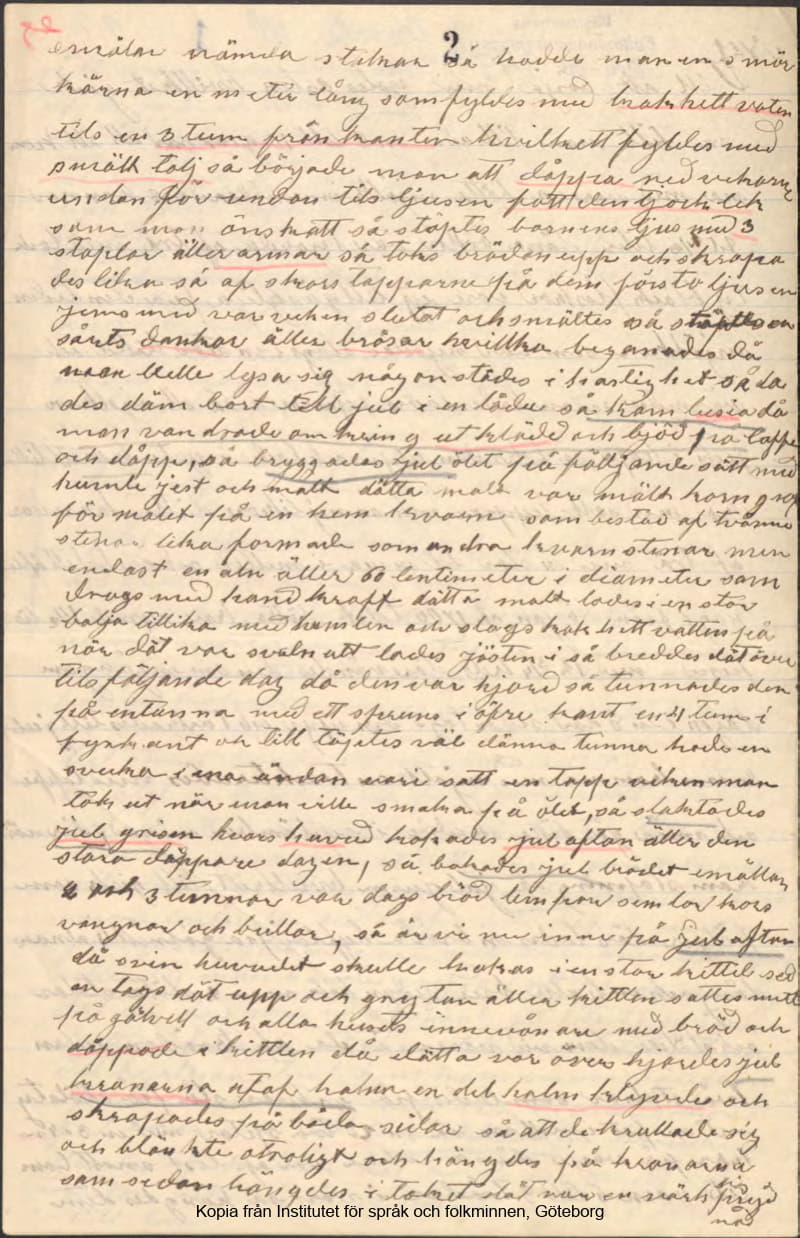 2
emälar nämda stekar så hadde man en smör
kärna en meter lång som fyldes med kokhett vaten
tils en 3 tum från kanten hvilkett fyldes med
smält talj så började man att dåppa ned vekarne
undan för undan tils ljusen fått den tjocklek
som man önskatt så stöptes barnens ljus med 3
staplar äller armar så toks brädan upp och skrapa
des lika så af skars tapparne på dem första ljusen
jems med var veken slutat och smältes så stöptes en
sårts dankar äller bråsar hvilka beganades då
man velle lysa sig någonstädes i hastighet så la
des däm bort till jul i en låda så kom lusia då
man vandrade omkring utklädd och bjöd på lappe
och dåpp, så bryggades jul ölet på följande sätt med
humle jest och malt dätta malt var mält korn grof
för malet på en hem kvarn som bestod af tvänne
stenar lika formade som andra kvarnstenar men
endast en aln äller 60 centimeter i diameter som
drogs med handkraft dätta malt lades i en stor
balja tillika med humlen och slogs kokhett vatten på
när dät var svalnatt lades jästen i så breddes dät över
tils följande dag då den var hjord så tunnades den
på en tunna med ett sprund i öfre kant en 4 tum i
fyrkant ok till täptes väl dänna tunna hade en
svicka i ena ändan vari satt en tapp viken man
tok ut när man ville smaka på ölet, så slaktades
jul grisen hvars huvud kokades jul aftan äller den
stora dåppare dagen, så bakades jul brödet emällan
2 och 3 tunnor var dags bröd limpor semlor kors
vangnar och bullar, så är vi nu inne på jul aftan
då svin huvudet skulle kokas i en stor kittel sed
an togs dät upp och grytan äller kittlen sattes mitt
på gålvet och alla husets innevånare med bröd och
dåppade i kittlen då dätta var över hjordes jul
kronorna utaf halm en del halm klyvdes och
skrapades på båda sidor så att de krullade sig
och blänkte otroligt och hängdes på kronorna
som sedan hängdes i taket dät var en värk pryd
nad
Kopia från Institutet för språk och folkminnen, Göteborg